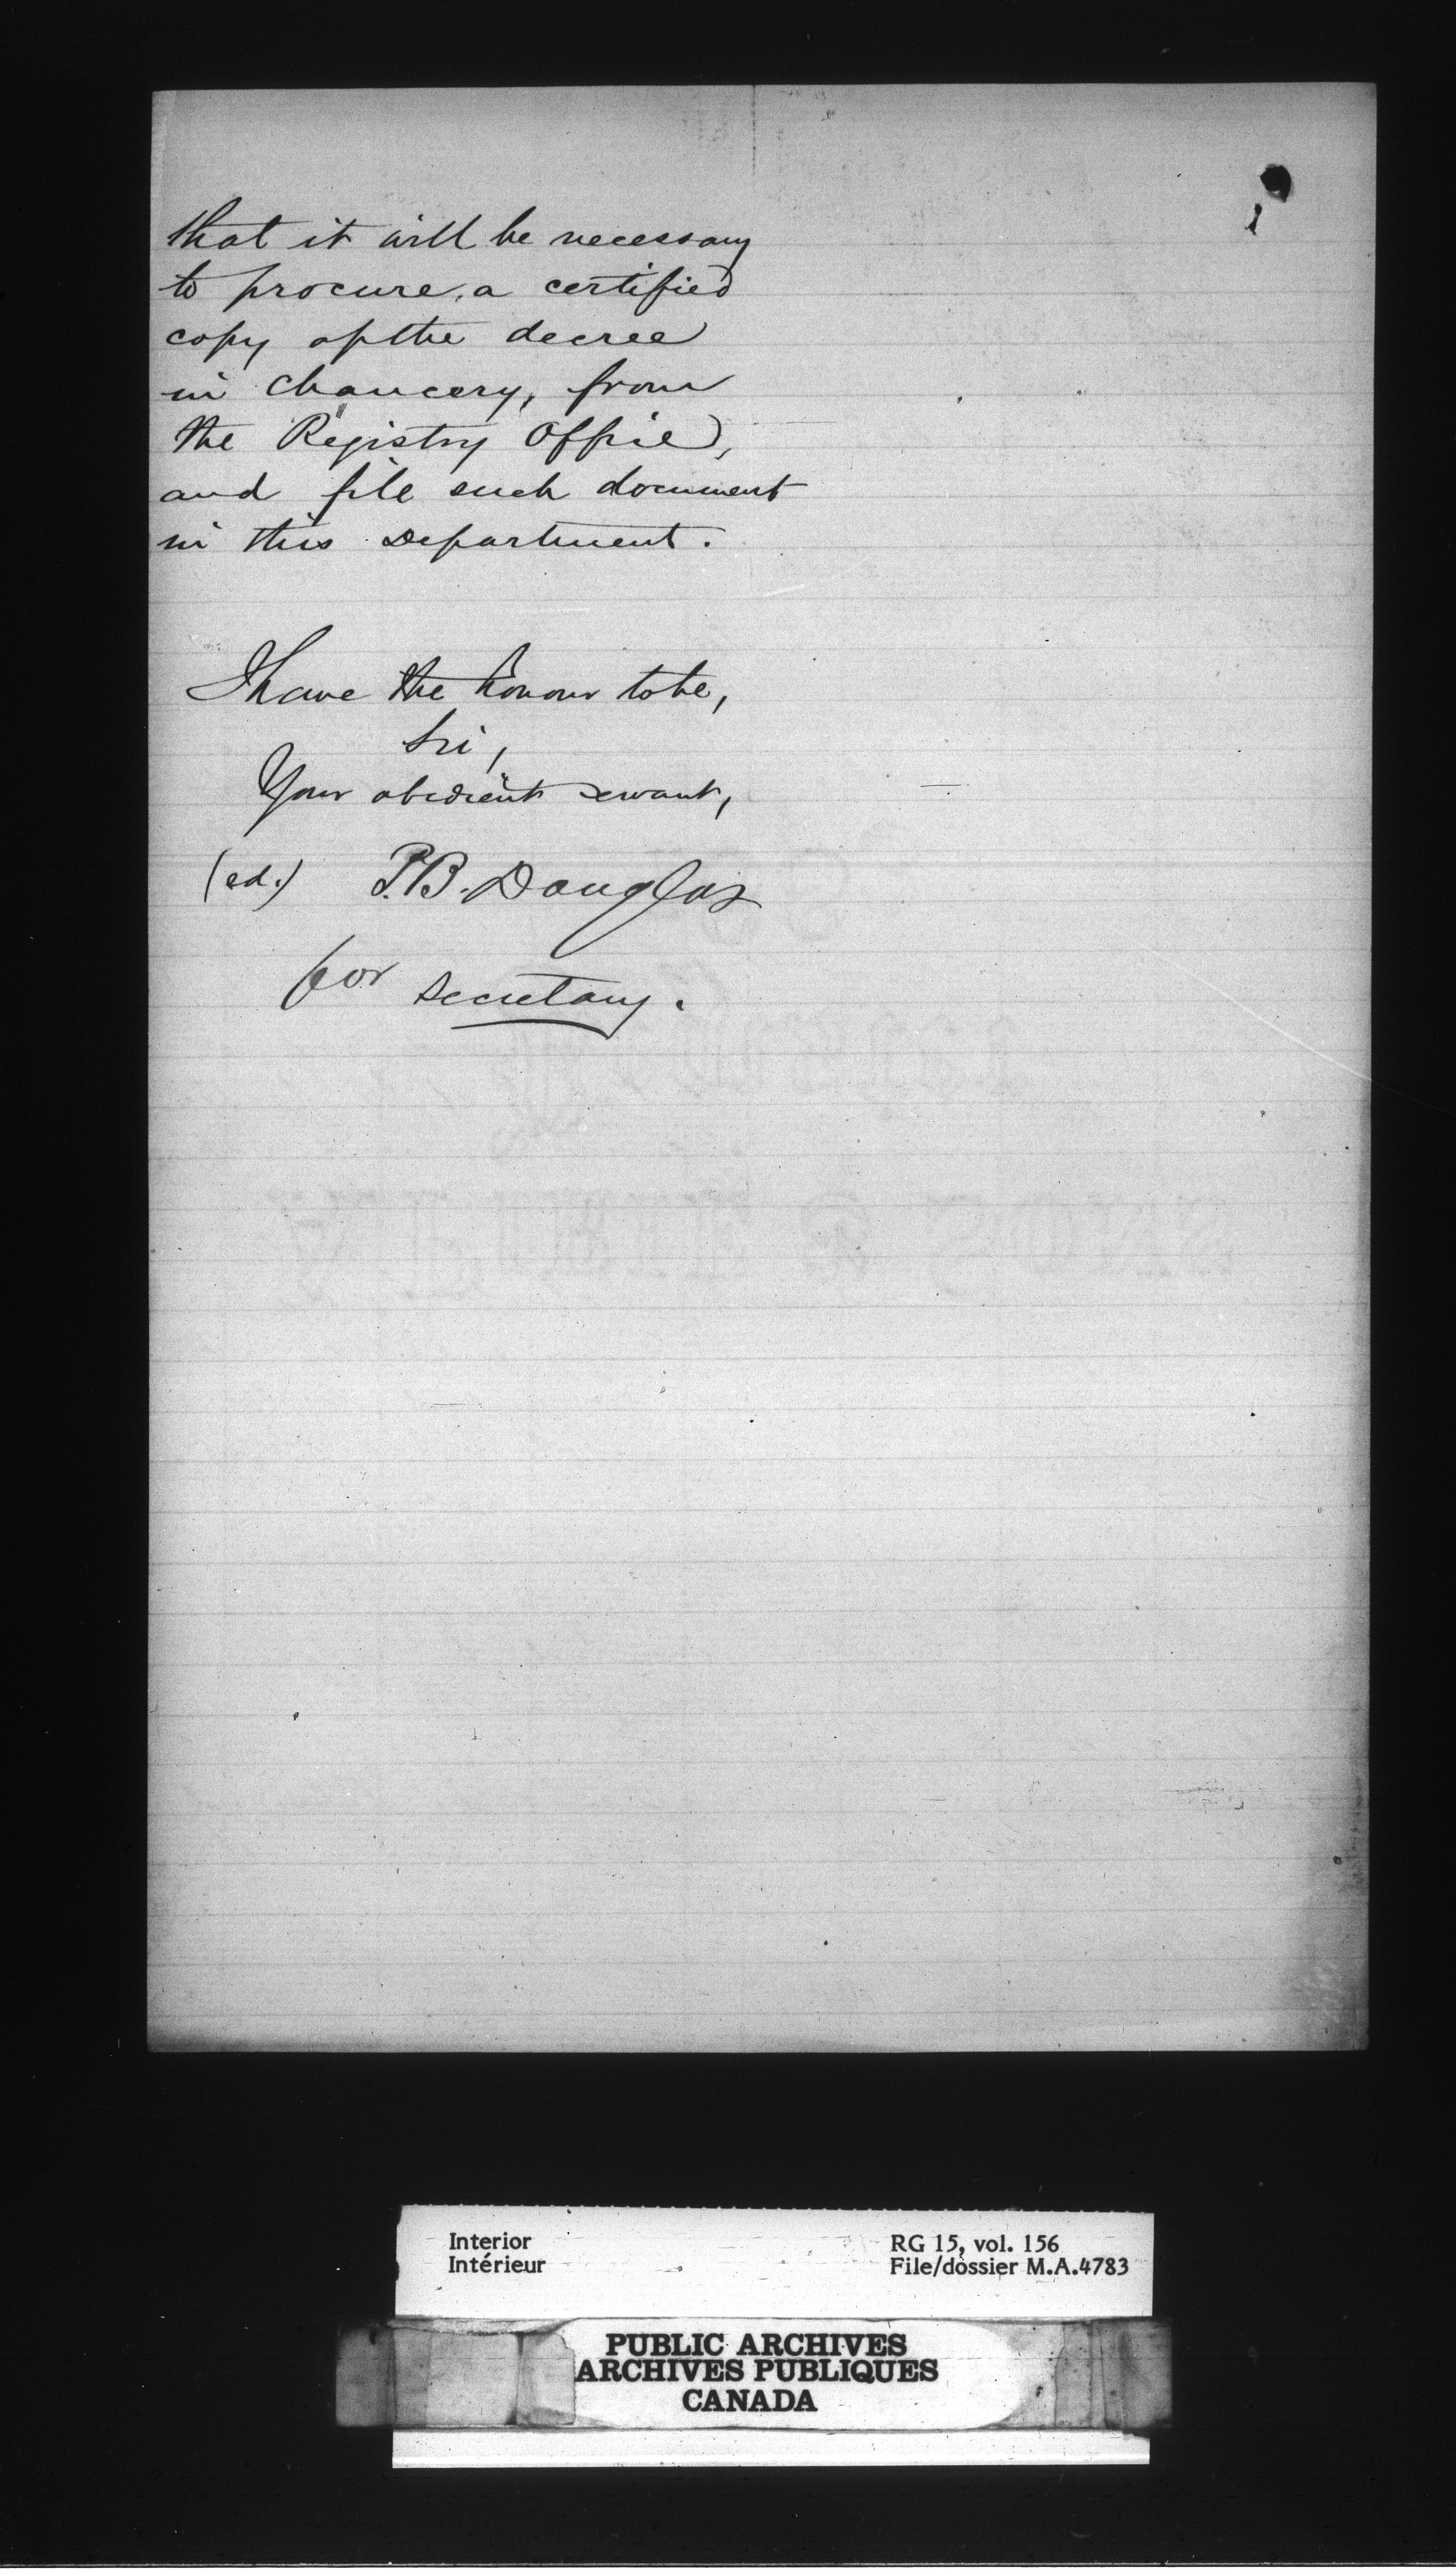 that it will be necessary
to procure, a certified
copy of the decree
in Chancery, from
the Registry Office,
and file such document
in this Department.
I have the honour to be,
Sir,
Your obedient servant,
(sd.) P.B. Douglas
for Secretary.
Interior
Intérieur
RG 15, vol. 156
File/dossier M.A.4783
PUBLIC ARCHIVES
ARCHIVES PUBLIQUES
CANADA